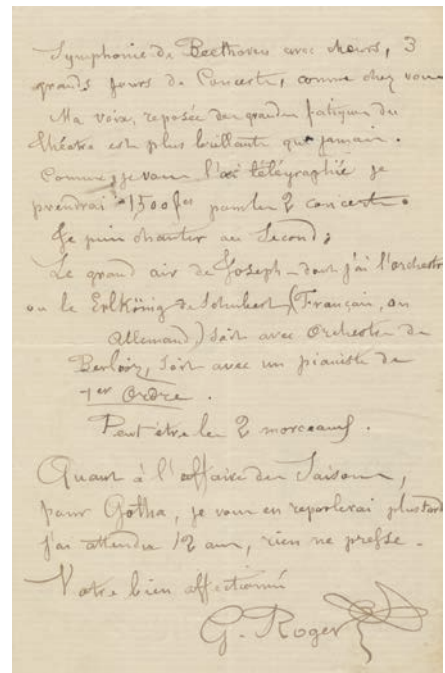 Symphonie de Beethoven avec chœurs, 3
grands jours de Concerts, comme chez vous
Ma voix, reposée des grandes fatigues du
théâtre est plus brillante que jamais.
Comme je vous l'ai télégraphié je
prendrai 1500 fcs pour les 2 concerts.
Je puis chanter au Second;
Le grand air de Joseph - dont j'ai l'orchestre
ou le Erlkönig de Schubert (Français, ou
Allemand) soit avec Orchestre de
Berlioz, soit avec un pianiste de
1er Ordre.
Peut être les 2 morceaux.
Quant à l'affaire des Saisons,
pour Gotha, je vous en reparlerai plus tard
j'ai attendu 12 ans, rien ne presse.
Votre bien affectionné
G. Roger